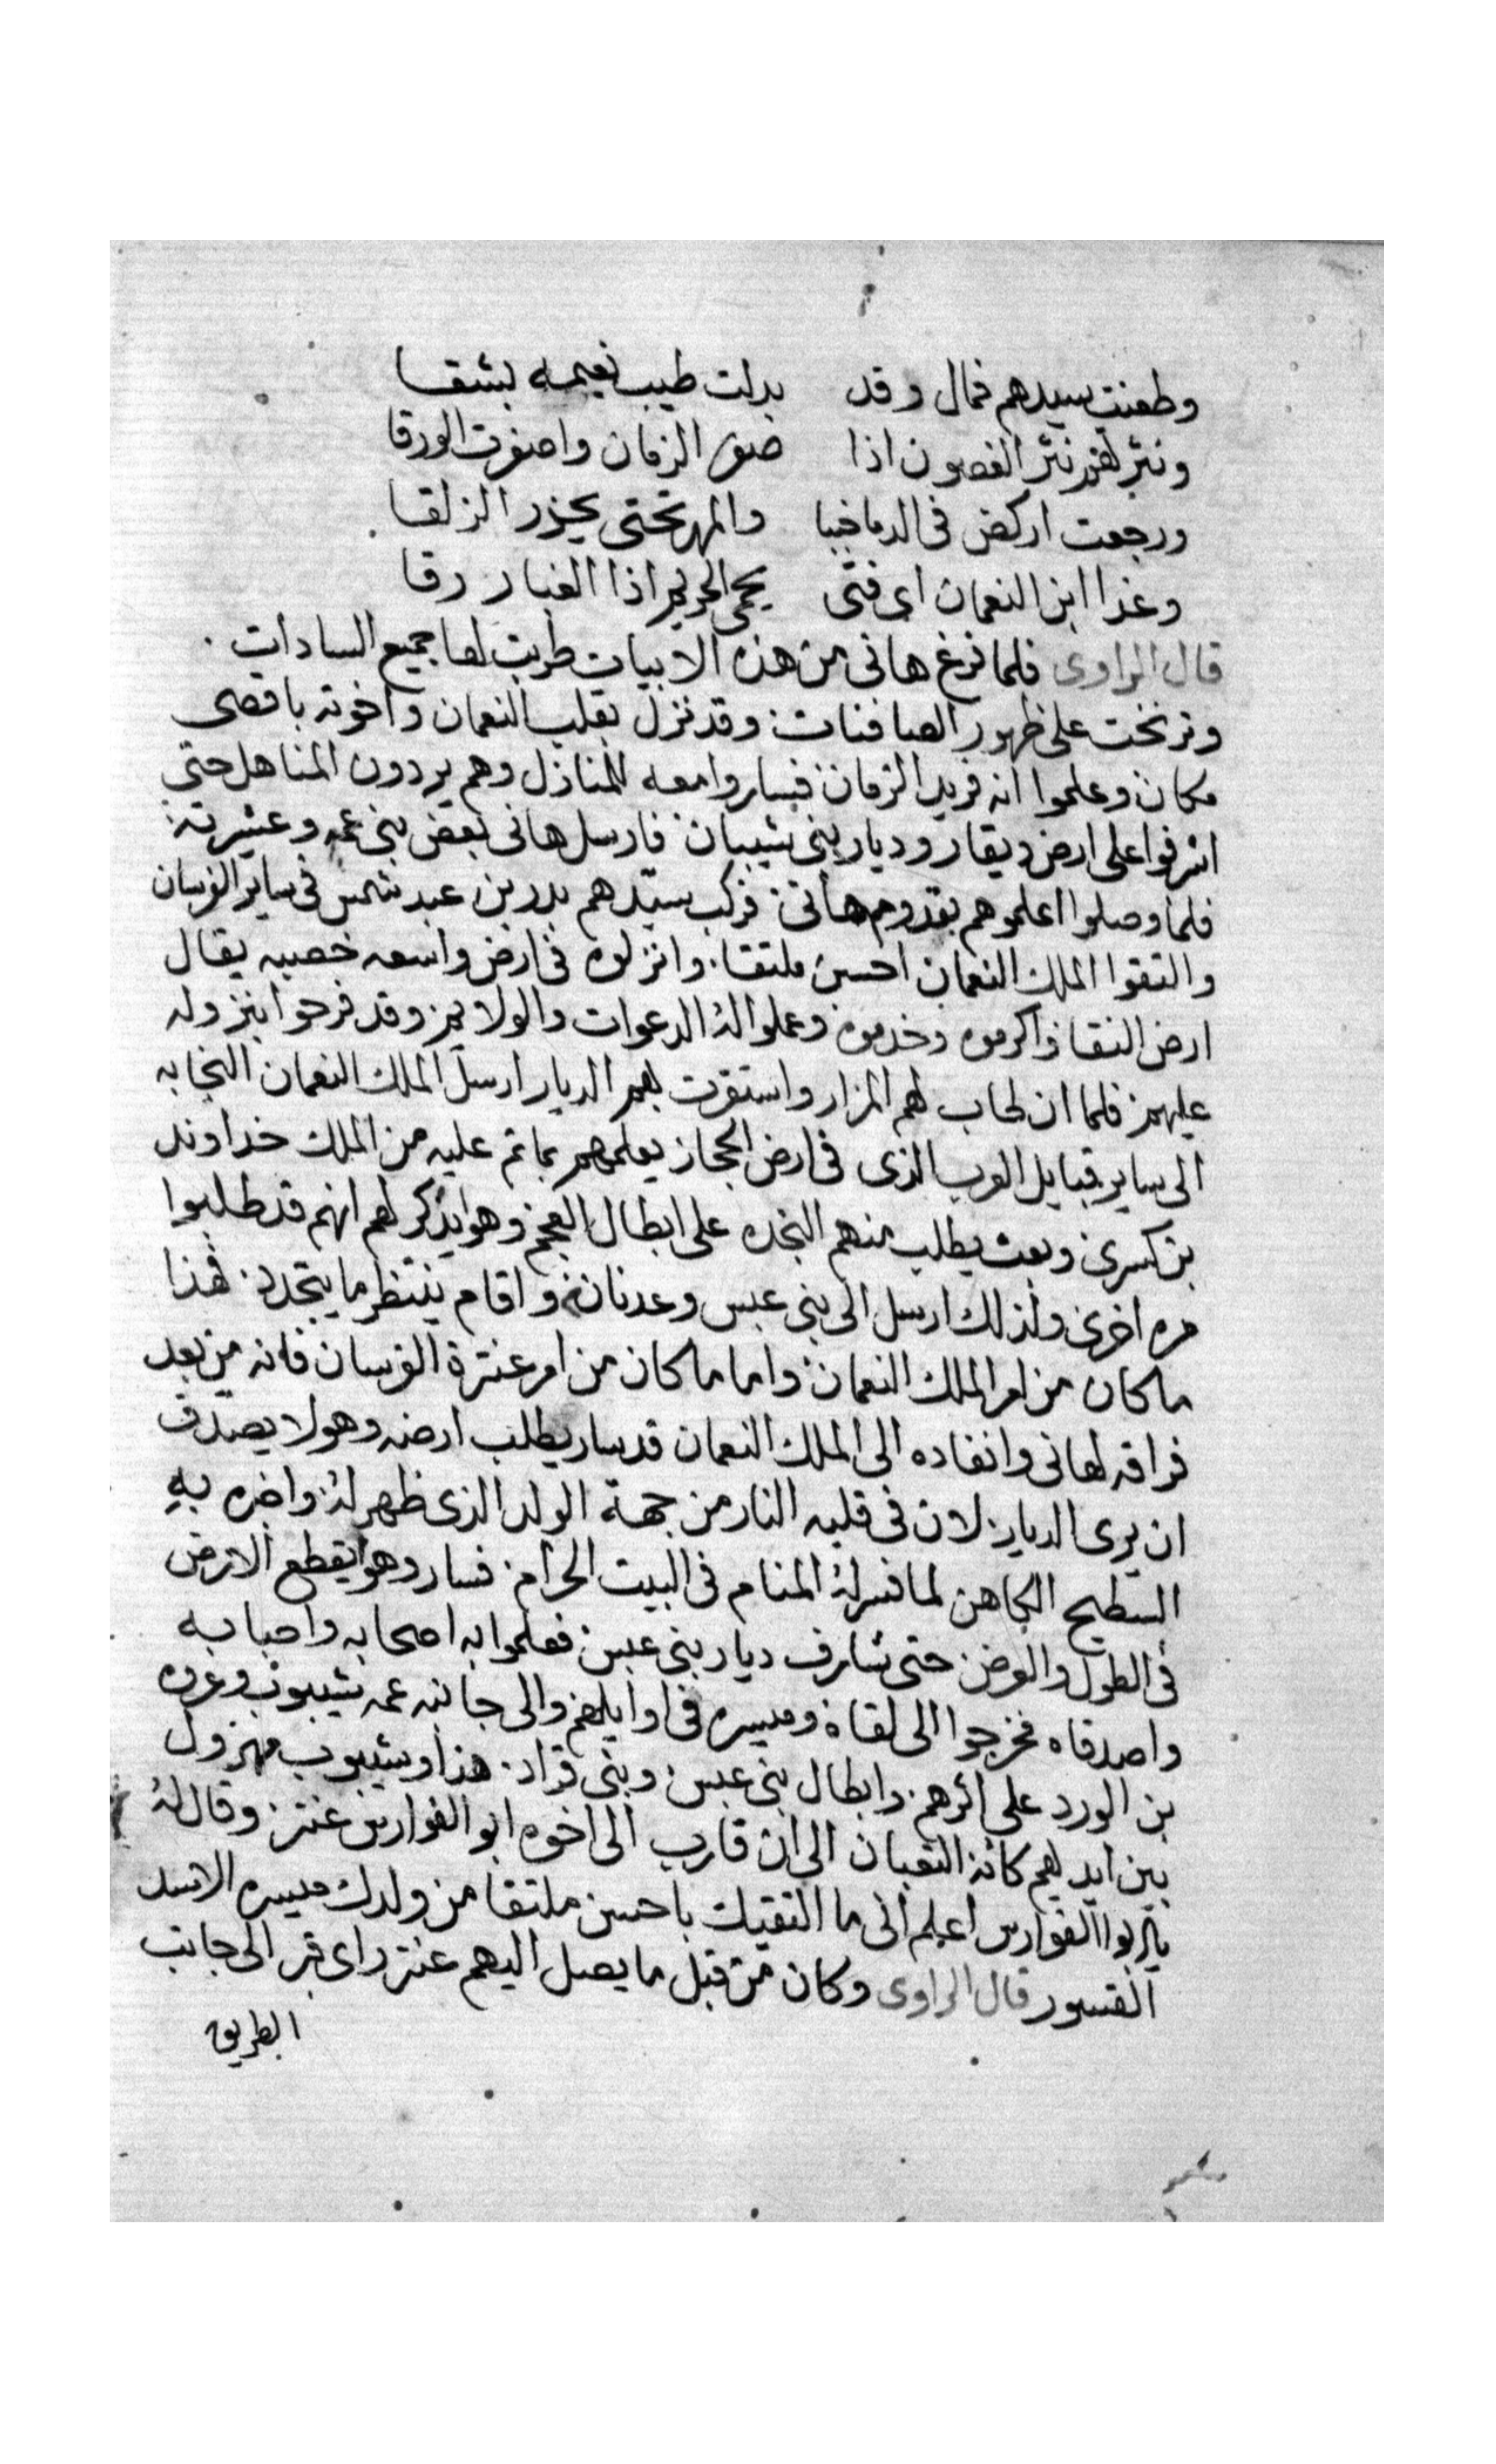 وطعنت سيدهم فمال وقد بدلت طيب نعيمه بشقا
ونثرتهم نثر الغصون اذا صفر الزمان واصفرت الورقا
ورجعت اركض في الدما خببا والمهر تحتي يحزر الزلقا
وغدا ابن النعمان اى فتى يحمى الحريم اذا الغبار رقا
قال الراوى فلما فرغ هانى من هذه الابيات طربت لها جميع السادات
وترنحت على ظهور الصافنات وقد نزل بقلب النعمان واخوته باقصى
مكان وعلموا انه فريد الزمان فساروا معه للمنازل وهم يردون المناهل حتى
اشرفوا على ارض ذيقار وديار بنى شيبان فارسل هانى بعض بنى عمه وعشيرته
فلما وصلوا اعلموهم بقدوم هانى فركب سيدهم بدر بن عبد شمس فى ساير الفرسان
والتقوا الملك النعمان احسن ملتقا وانزلوه فى ارض واسعه خصبيه يقال
ارض النقا واكرموه وخدموه وعملوا له الدعوات والولايم وقد فرحوا بنزوله
عليهم فلما ان طاب لهم المزار واستقرت بهم الديار ارسل الملك النعمان النجابه
الى ساير قبايل العرب الذى فى ارض الحجاز يعلمهم بماتم عليه من الملك خداوند
بن كسرى وبعث يطلب منهم النجده على ابطال العجم وهو يذكر لهم انهم قد طلبوا
مره اخرى ولذلك ارسل الى بنى عبس وعدنان واقام ينتظر ما يتجدد هذا
ما كان من امر الملك النعمان واما ما كان من امر عنترة الفرسان فانه من بعد
فراقه لهانى وانفاده الى الملك النعمان قد سار يطلب ارضه وهو لا يصدق
ان يرى الديار لان فى قلبه النار من جهة الولد الذى ظهر له واخبره به
السطيح الكاهن لما فسر له المنام فى البيت الحرام فسار وهو يقطع الارض
فى الطول والعرض حتى شارف ديار بنى عبس فعلموا به اصحابه واحبابه
واصدقاه فخرجوا الى لقاه وميسره فى اوايلهم والى جانبه عمه شيبوب وعروه
بن الورد على اثرهم وابطال بنى عبس وبنى قراد هذا وشيبوب مهزول
بين ايديهم كانه الثعبان الى ان قارب الى اخوه ابو الفوارس عنتر وقال له
يا ابوا الفوارس اعلم انى ما التقيك باحسن ملتقا من ولدك ميسره الاسد
القسور قال الراوى وكان من قبل ما يصل اليهم عنتر راى قبر الى جانب
الطريق